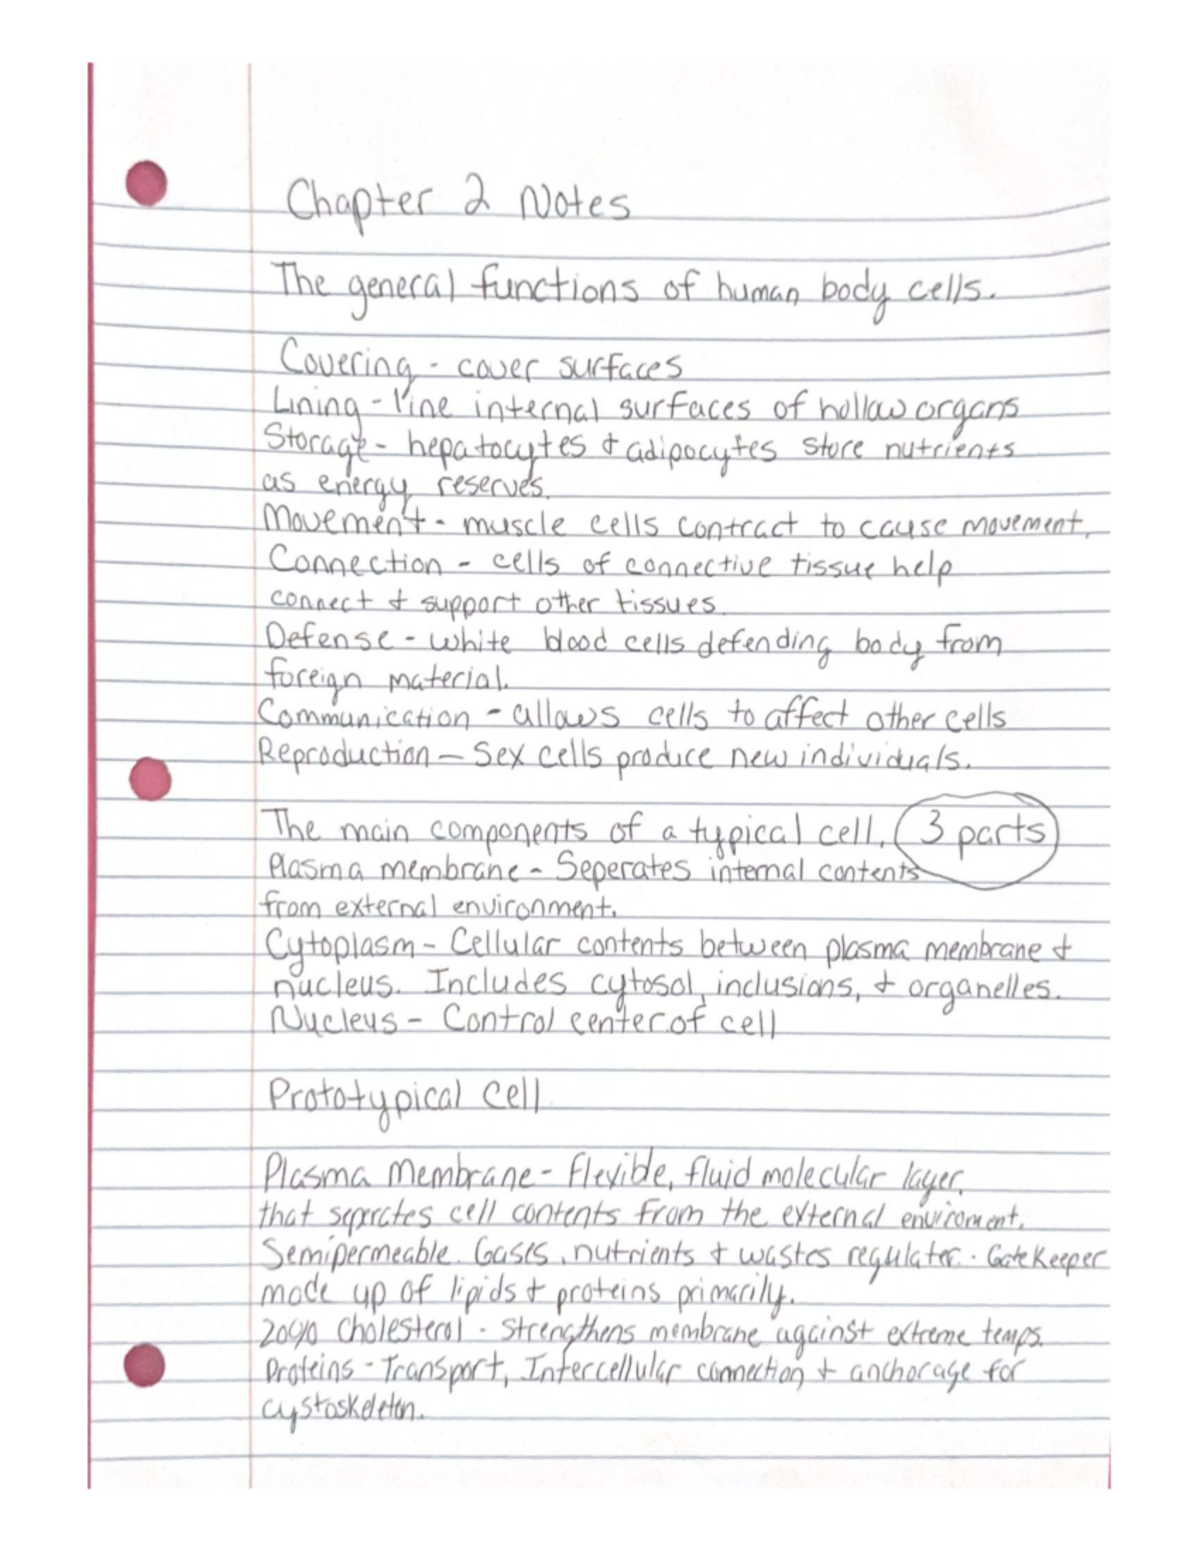 Chapter 2 Notes
The general functions of human body cells.
Covering - cover surfaces
Lining - line internal surfaces of hollow organs
Storage - hepatocytes & adipocytes store nutrients
as energy reserves.
Movement - muscle cells contract to cause movement.
Connection - cells of connective tissue help
connect & support other tissues.
Defense - white blood cells defending body from
foreign material.
Communication - allows cells to affect other cells
Reproduction - Sex cells produce new individuals.
The main components of a typical cell. 3 parts
Plasma membrane - Seperates internal contents
from external environment.
Cytoplasm - Cellular contents between plasma membrane &
nucleus. Includes cytosol, inclusions, & organelles.
Nucleus - Control center of cell
Prototypical Cell
Plasma Membrane - Flexible, fluid molecular layer.
that seperates cell contents from the external enviroment.
Semipermeable. Gases, nutrients & wastes regulater. Gate Keeper
made up of lipids & proteins primarily.
20% Cholesterol - Strengthens membrane against extreme temps.
Proteins - Transport, Intercellular connection & anchorage for
cystoskeleton.